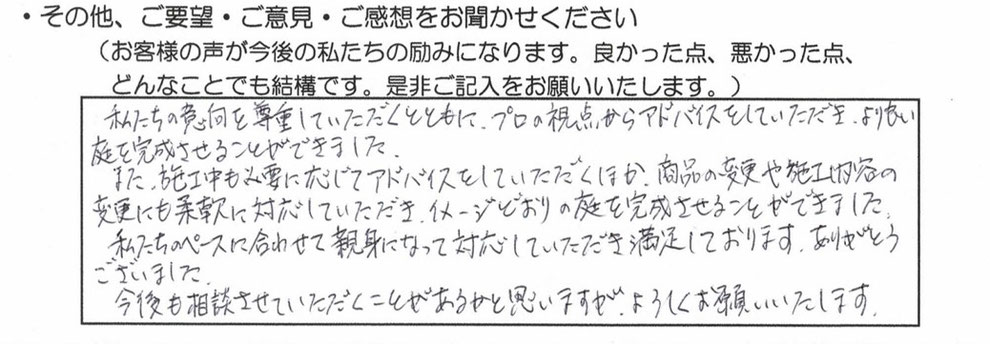 ・その他、ご要望・ご意見・ご感想をお聞かせください
（お客様の声が今後の私たちの励みになります。良かった点、悪かった点、
どんなことでも結構です。是非ご記入をお願いいたします。）
私たちの意向を尊重していただくとともに、プロの視点からアドバイスをしていただき、より良い
庭を完成させることができました。
また、施工中も必要に応じてアドバイスをしていただくほか、商品の変更や施工内容の
変更にも柔軟に対応していただき、イメージどおりの庭を完成させることができました。
私たちのペースに合わせて親身になって対応していただき満足しております。ありがとう
ございました。
今後も相談させていただくことがあるかと思いますが、よろしくお願いいたします。